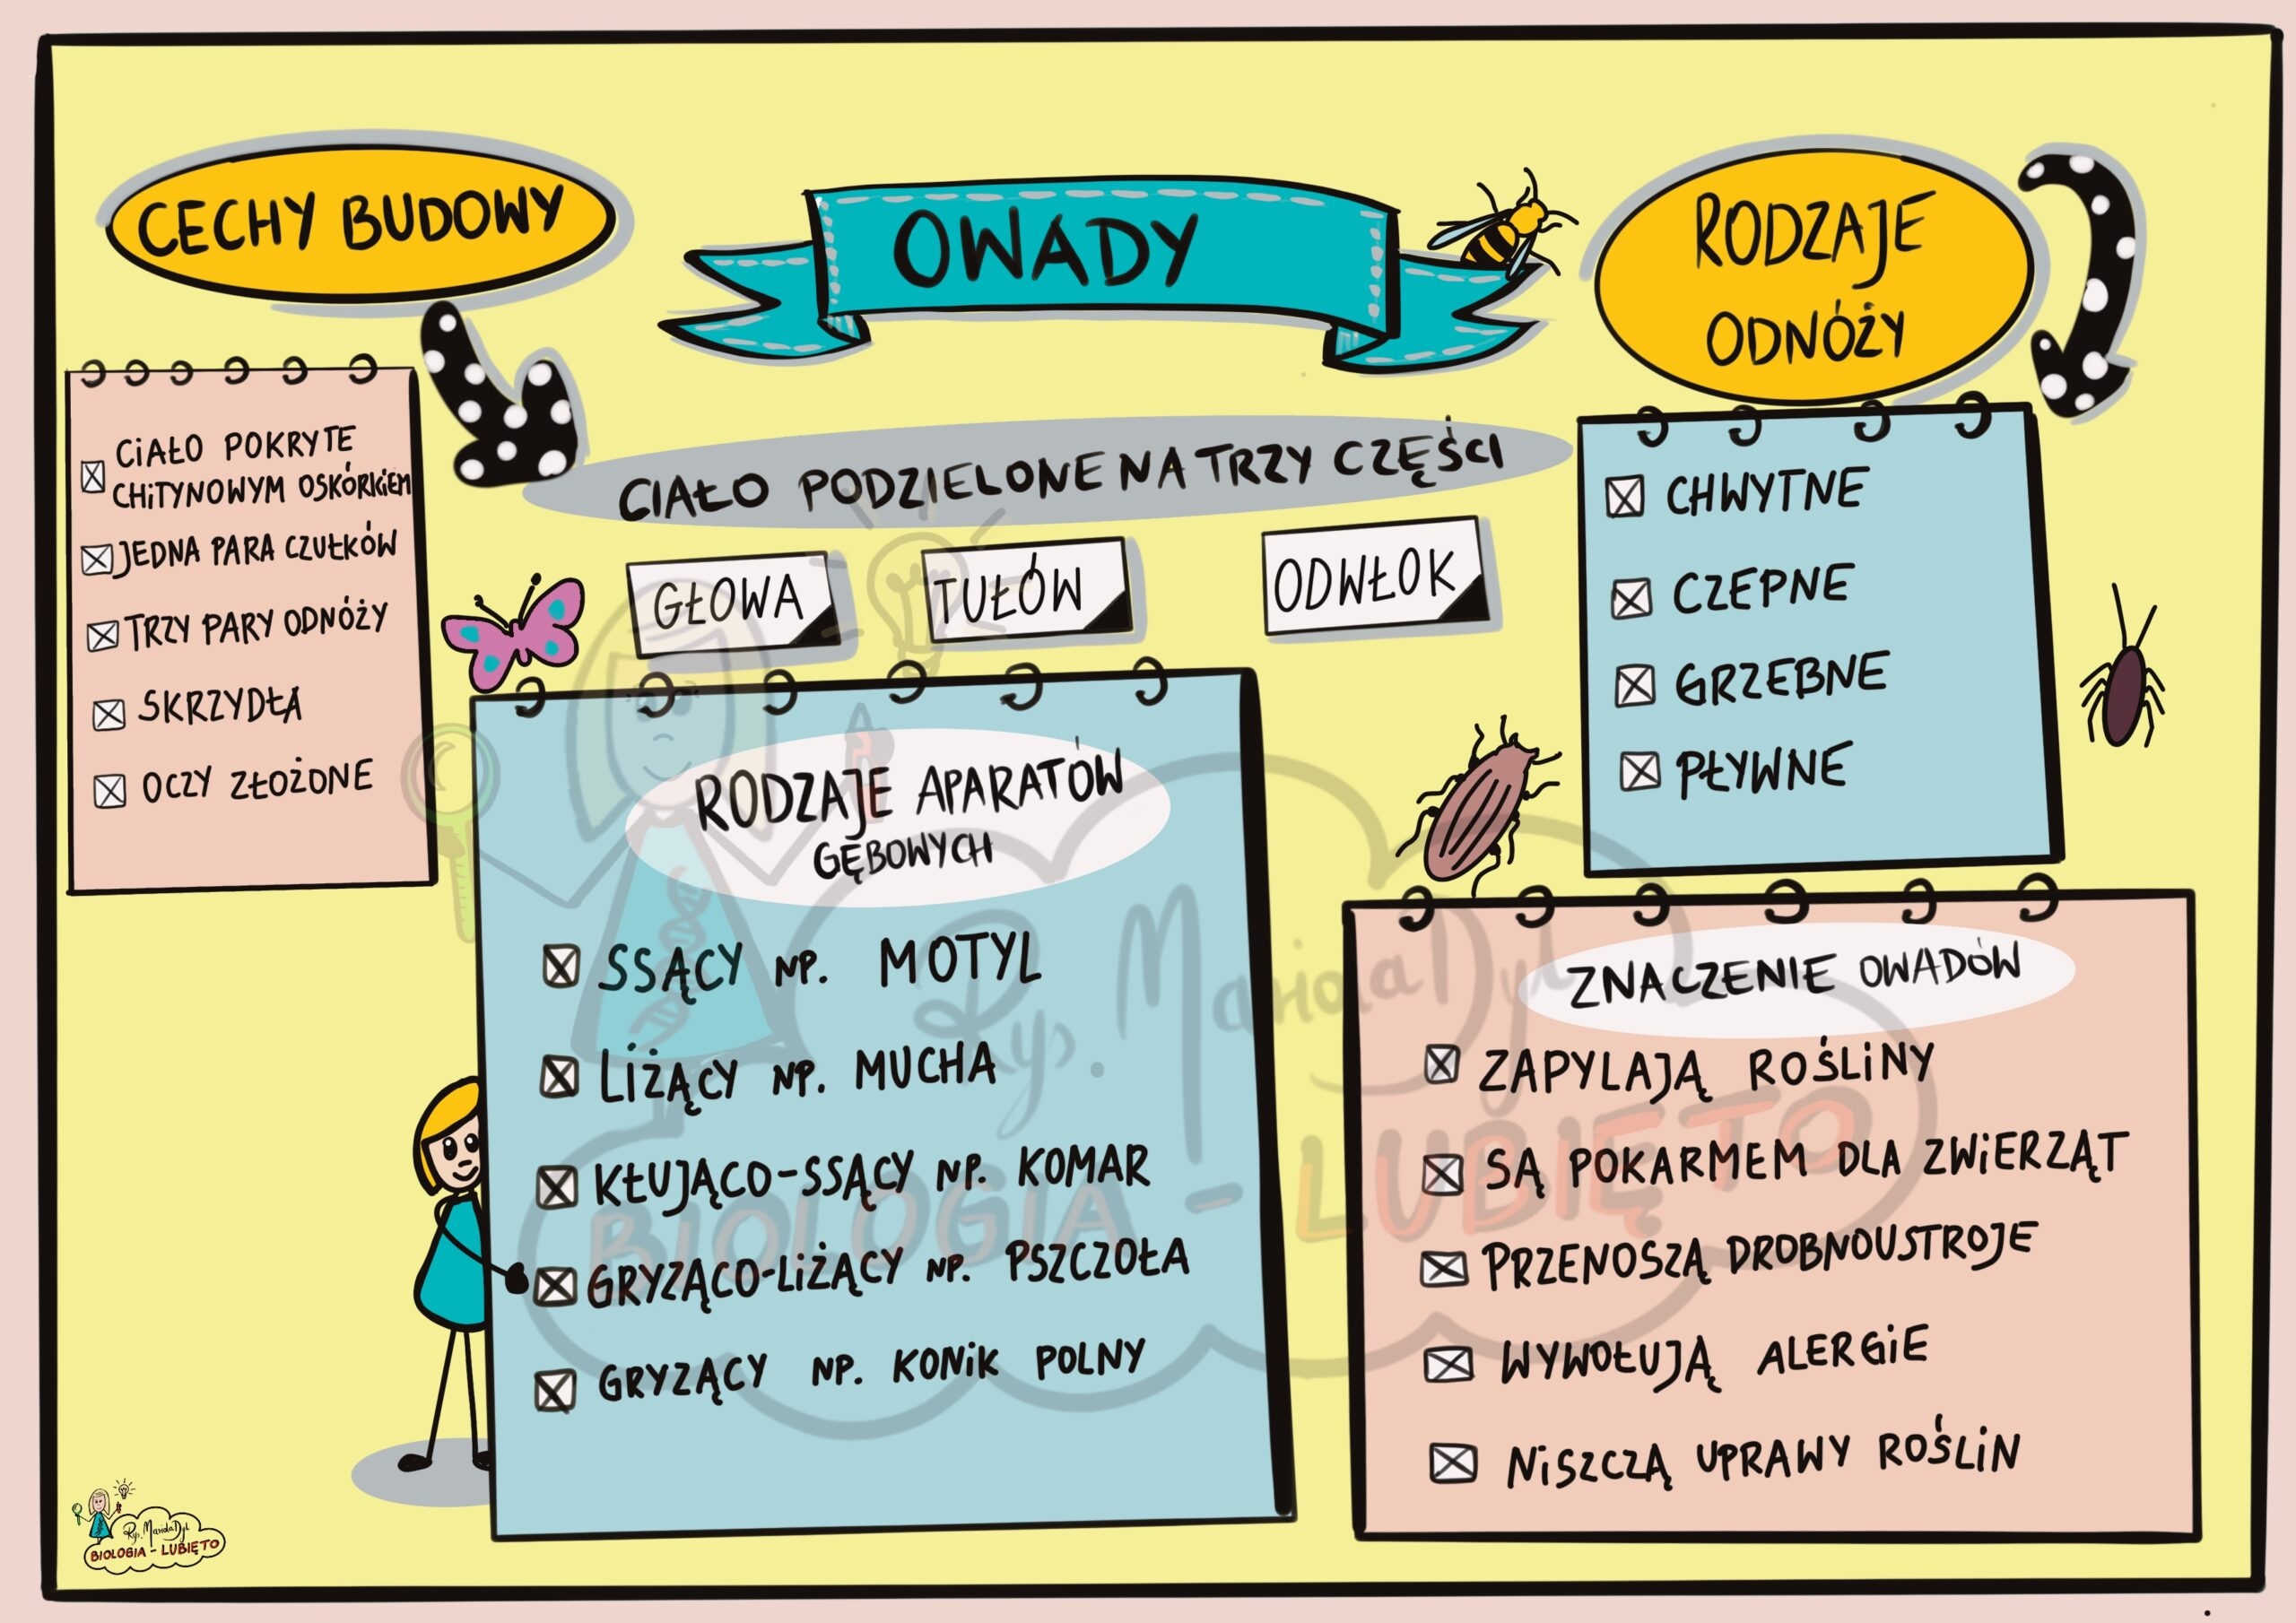 CECHY BUDOWY
CIAŁO POKRYTE
CHITYNOWYM OSKÓRKIEM
JEDNA PARA CZUŁKÓW
TRZY PARY ODNÓŻY
SKRZYDŁA
OCZY ZŁOŻONE
OWADY
CIAŁO PODZIELONE NA TRZY CZĘŚCI
GŁOWA
TUŁÓW
ODWŁOK
RODZAJE APARATÓW
GĘBOWYCH
SSĄCY NP. MOTYL
LIŻĄCY NP. MUCHA
KŁUJĄCO-SSĄCY NP. KOMAR
GRYZĄCO-LIŻĄCY NP. PSZCZOŁA
GRYZĄCY NP. KONIK POLNY
RODZAJE
ODNÓŻY
CHWYTNE
CZEPNE
GRZEBNE
PŁYWNE
ZNACZENIE OWADÓW
ZAPYLAJĄ ROŚLINY
SĄ POKARMEM DLA ZWIERZĄT
PRZENOSZĄ DROBNOUSTROJE
WYWOŁUJĄ ALERGIE
NISZCZĄ UPRAWY ROŚLIN
Rys. Mariola Dyl
BIOLOGIA - LUBIĘ TO
Rys. Mariola Dyl
BIOLOGIA - LUBIĘ TO